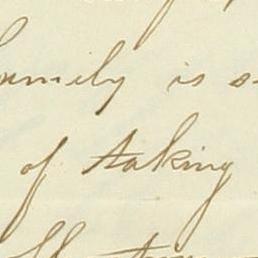 family is
of taking